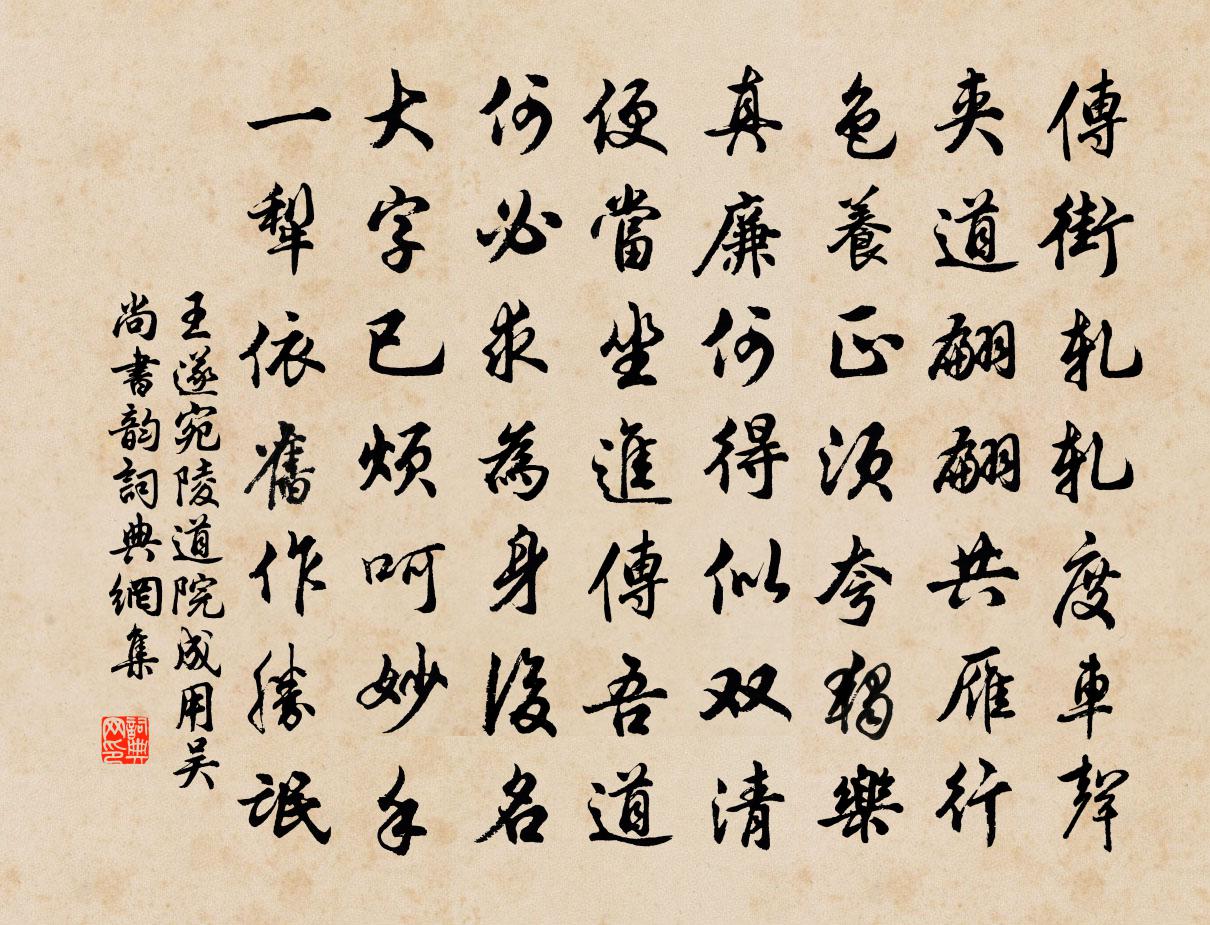 傳街軋軋度車聲
夾道翩翩共雁行
色養正須夸獨樂
真廉何得似双清
便當坐進傳吾道
何必求為身後名
大字已煩呵妙手
一犂依舊作勝氓
王遂宛陵道院成用吴
尚書韵詞典網集
詞典网印